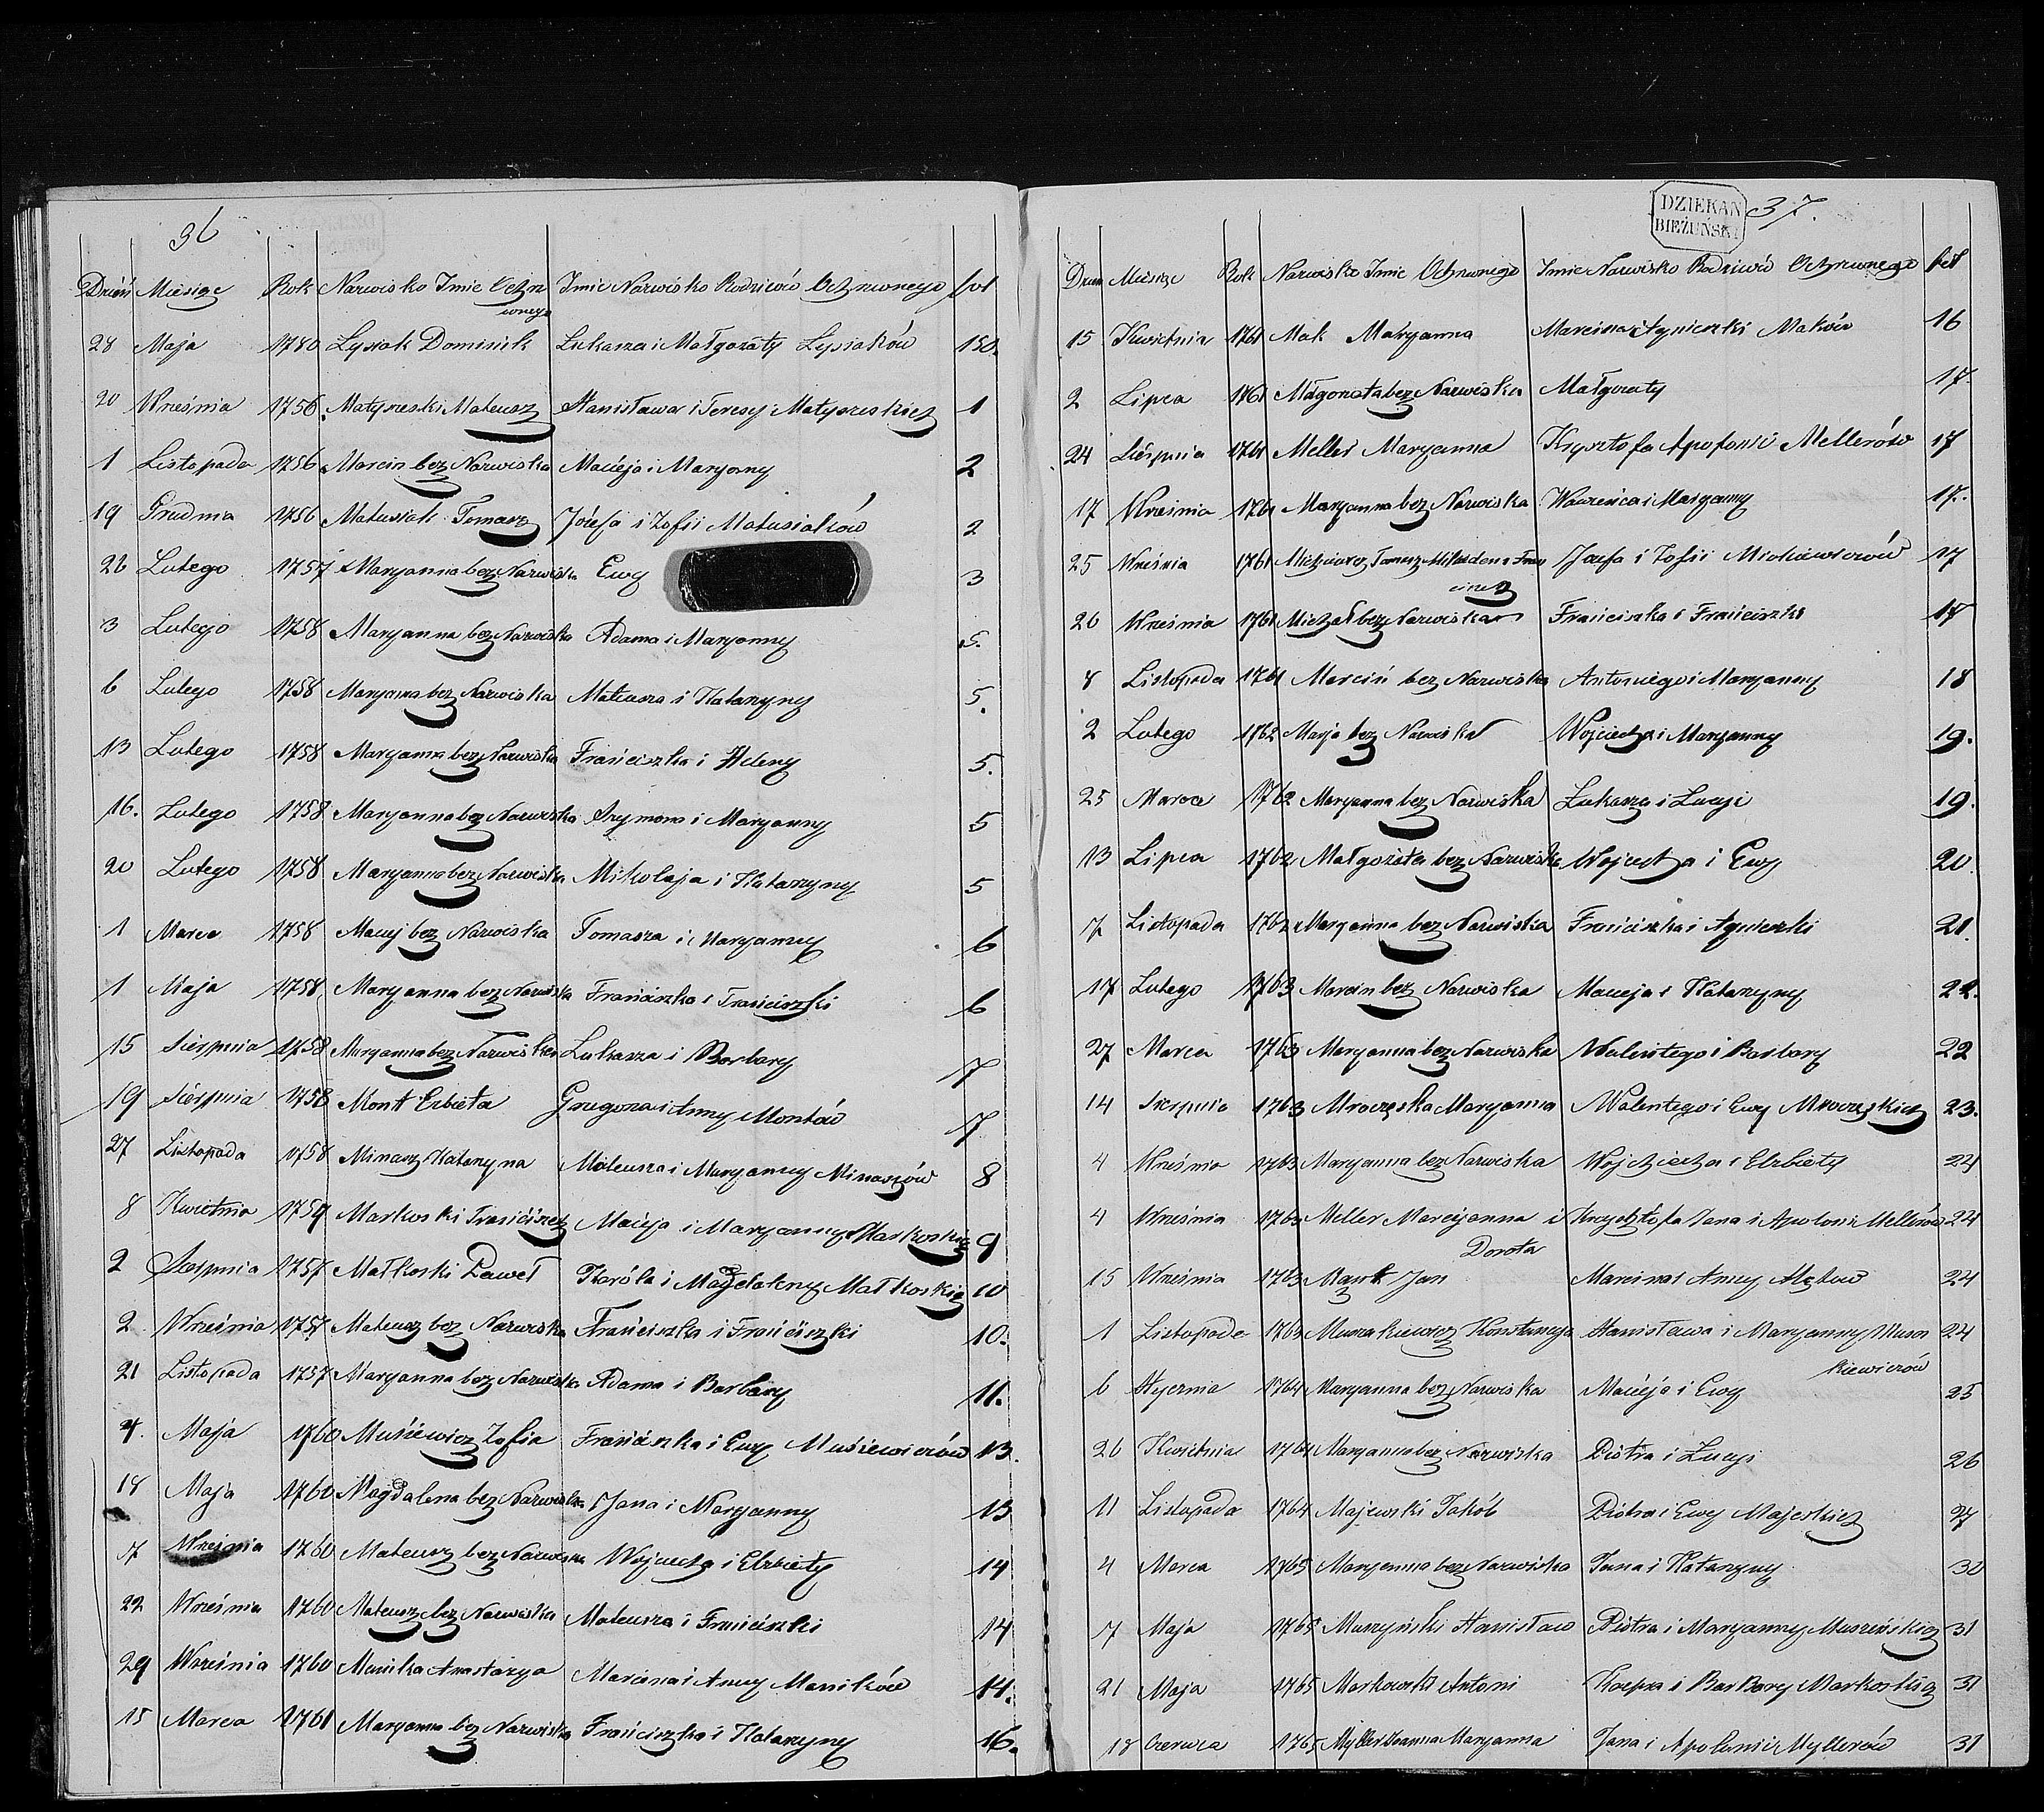 36
Dzień Miesiąc Rok Nazwisko Imie Ochrz Imie Nazwisko Rodziców Ochrzconego fol
conego
28 Maja 1780 Lysiak Dominik Lukasza i Małgozaty Lysiaków 150.
20 Wrzesnia 1756. Matyszeski Mateusz Stanisława i Teresy Matyszeskich 1
1 Listopada 1756 Marcin bez Nazwiska Macieja i Maryanny 2
19 Grudnia 1756 Matusiak Tomasz Józefa i Zofii Matusiaków 2
26 Lutego 1757 Maryanna bez Nazwiska Ewy 3
3 Lutego 1758 Maryanna bez Nazwiska Adama i Maryanny 5.
6 Lutego 1758 Maryanna bez Nazwiska Mateusza i Katarzyny 5.
13 Lutego 1758 Maryanna bez Nazwiska Franciszka i Heleny 5.
16. Lutego 1758 Maryanna bez Nazwiska Szymona i Maryanny 5
20 Lutego 1758 Maryanna bez Nazwiska Mikolaja i Katarzyny 5
1 Marca 1758 Maciej bez Nazwiska Tomasza i Maryanny 6
1 Maja 1758 Maryanna bez Nazwiska Franciszka i Franciszki 6
15 Sierpnia 1758 Maryanna bez Nazwiska Lukasza i Barbary 7
19 Sierpnia 1758 Mont Elzbieta Grzegorza i Anny Montów 7
27 Listopada 1758 Minasz Katarzyna Mateusza i Maryanny Minaszów 8
8 Kwietnia 1759 Markoski Franciszek Macieja i Maryanny Markoskich 9
2 Sierpnia 1757 Małkoski Paweł Karóla i Magdaleny Małkoskich 10
2 Wrzesnia 1757 Mateusz bez Nazwiska Franciszka i Franciszki 10.
21 Listopada 1757 Maryanna bez Nazwiska Adama i Barbary 11.
4. Maja 1760 Musiewicz Zofia Franciszka i Ewy Musiewiczów 13.
18 Maja 1760 Magdalena bez Nazwiska Jana i Maryanny 13
7 Wrzesnia 1760 Mateusz bez Nazwiska Wojciecha i Elzbiety 14
22 Wrzesnia 1760 Mateusz bez Nazwiska Mateusza i Franciszki 14
29 Wrzesnia 1760 Manika Anastazya Marcina i Anny Maników 14.
15 Marca 1761 Maryanna bez Nazwiska Franciszka i Katarzyny 16.
DZIEKAN
BIEŻUŃSKI
37.
Dzien Miesiąc Rok Nazwisko Imie Ochrzconego Imie Nazwisko Rodziców Ochrzconego fol
15 Kwietnia 1761 Mak Maryanna Marcina i Agnieszki Maków 16
2 Lipca 1761 Małgorzata bez Nazwiska Małgorzaty 17.
24 Sierpnia 1761 Meller Maryanna Krzysztofa Apolonii Mellerów 17
17 Wrzesnia 1761 Maryanna bez Nazwiska Wawrzeńca i Maryanny 17.
25 Wrzesnia 1761 Michiewicz Tomasz Józefa i Zofii Michiewiczów 17
26 Wrzesnia 1761 Michał bez Nazwiska Franciszka i Franciszki 17
8 Listopada 1761 Marcin bez Nazwiska Antoniego i Maryanny 18
2 Lutego 1762 Marja bez Nazwiska Wojciecha i Maryanny 19.
25 Marca 1762 Maryanna bez Nazwiska Łukasza i Lucyi 19.
13 Lipca 1762 Małgorzata bez Nazwiska Wojciecha i Ewy 20
7 Listopada 1762 Maryanna bez Nazwiska Franciszka i Agnieszki 21.
17 Lutego 1763 Marcin bez Nazwiska Macieja i Katarzyny 22.
27 Marca 1763 Maryanna bez Nazwiska Walentego i Barbary 22
14 Sierpnia 1763 Mroczeska Maryanna Walentego i Ewy Mroczeskich 23.
4 Wrzesnia 1763 Maryanna bez Nazwiska Wojciecha i Elzbiety 24
4 Wrzesnia 1763 Meller Maryanna i Krzysztofa Jana i Apolonii Mellerów 24
Dorota
15 Wrzesnia 1763 Jan Marcina i Anny 24
1 Listopada 1763 Muszakiewicz Konstancya Stanisława i Maryanny Musza 24
kiewiczów
6 Stycznia 1764 Maryanna bez Nazwiska Macieja i Ewy 25
26 Kwietnia 1764 Maryanna bez Nazwiska Piotra i Lucyi 26
11 Listopada 1764 Majewski Jakób Piotra i Ewy Majeskich 27
4 Marca 1765 Maryanna bez Nazwiska Jana i Katarzyny 30
7 Maja 1765 Muszyński Stanisław Piotra i Maryanny Muszińskich 31
21 Maja 1765 Markowski Antoni Kacpra i Barbary Markoskich 31
18 Czerwca 1765 Myller Joanna Maryanna Jana i Apolonii Myllerów 31